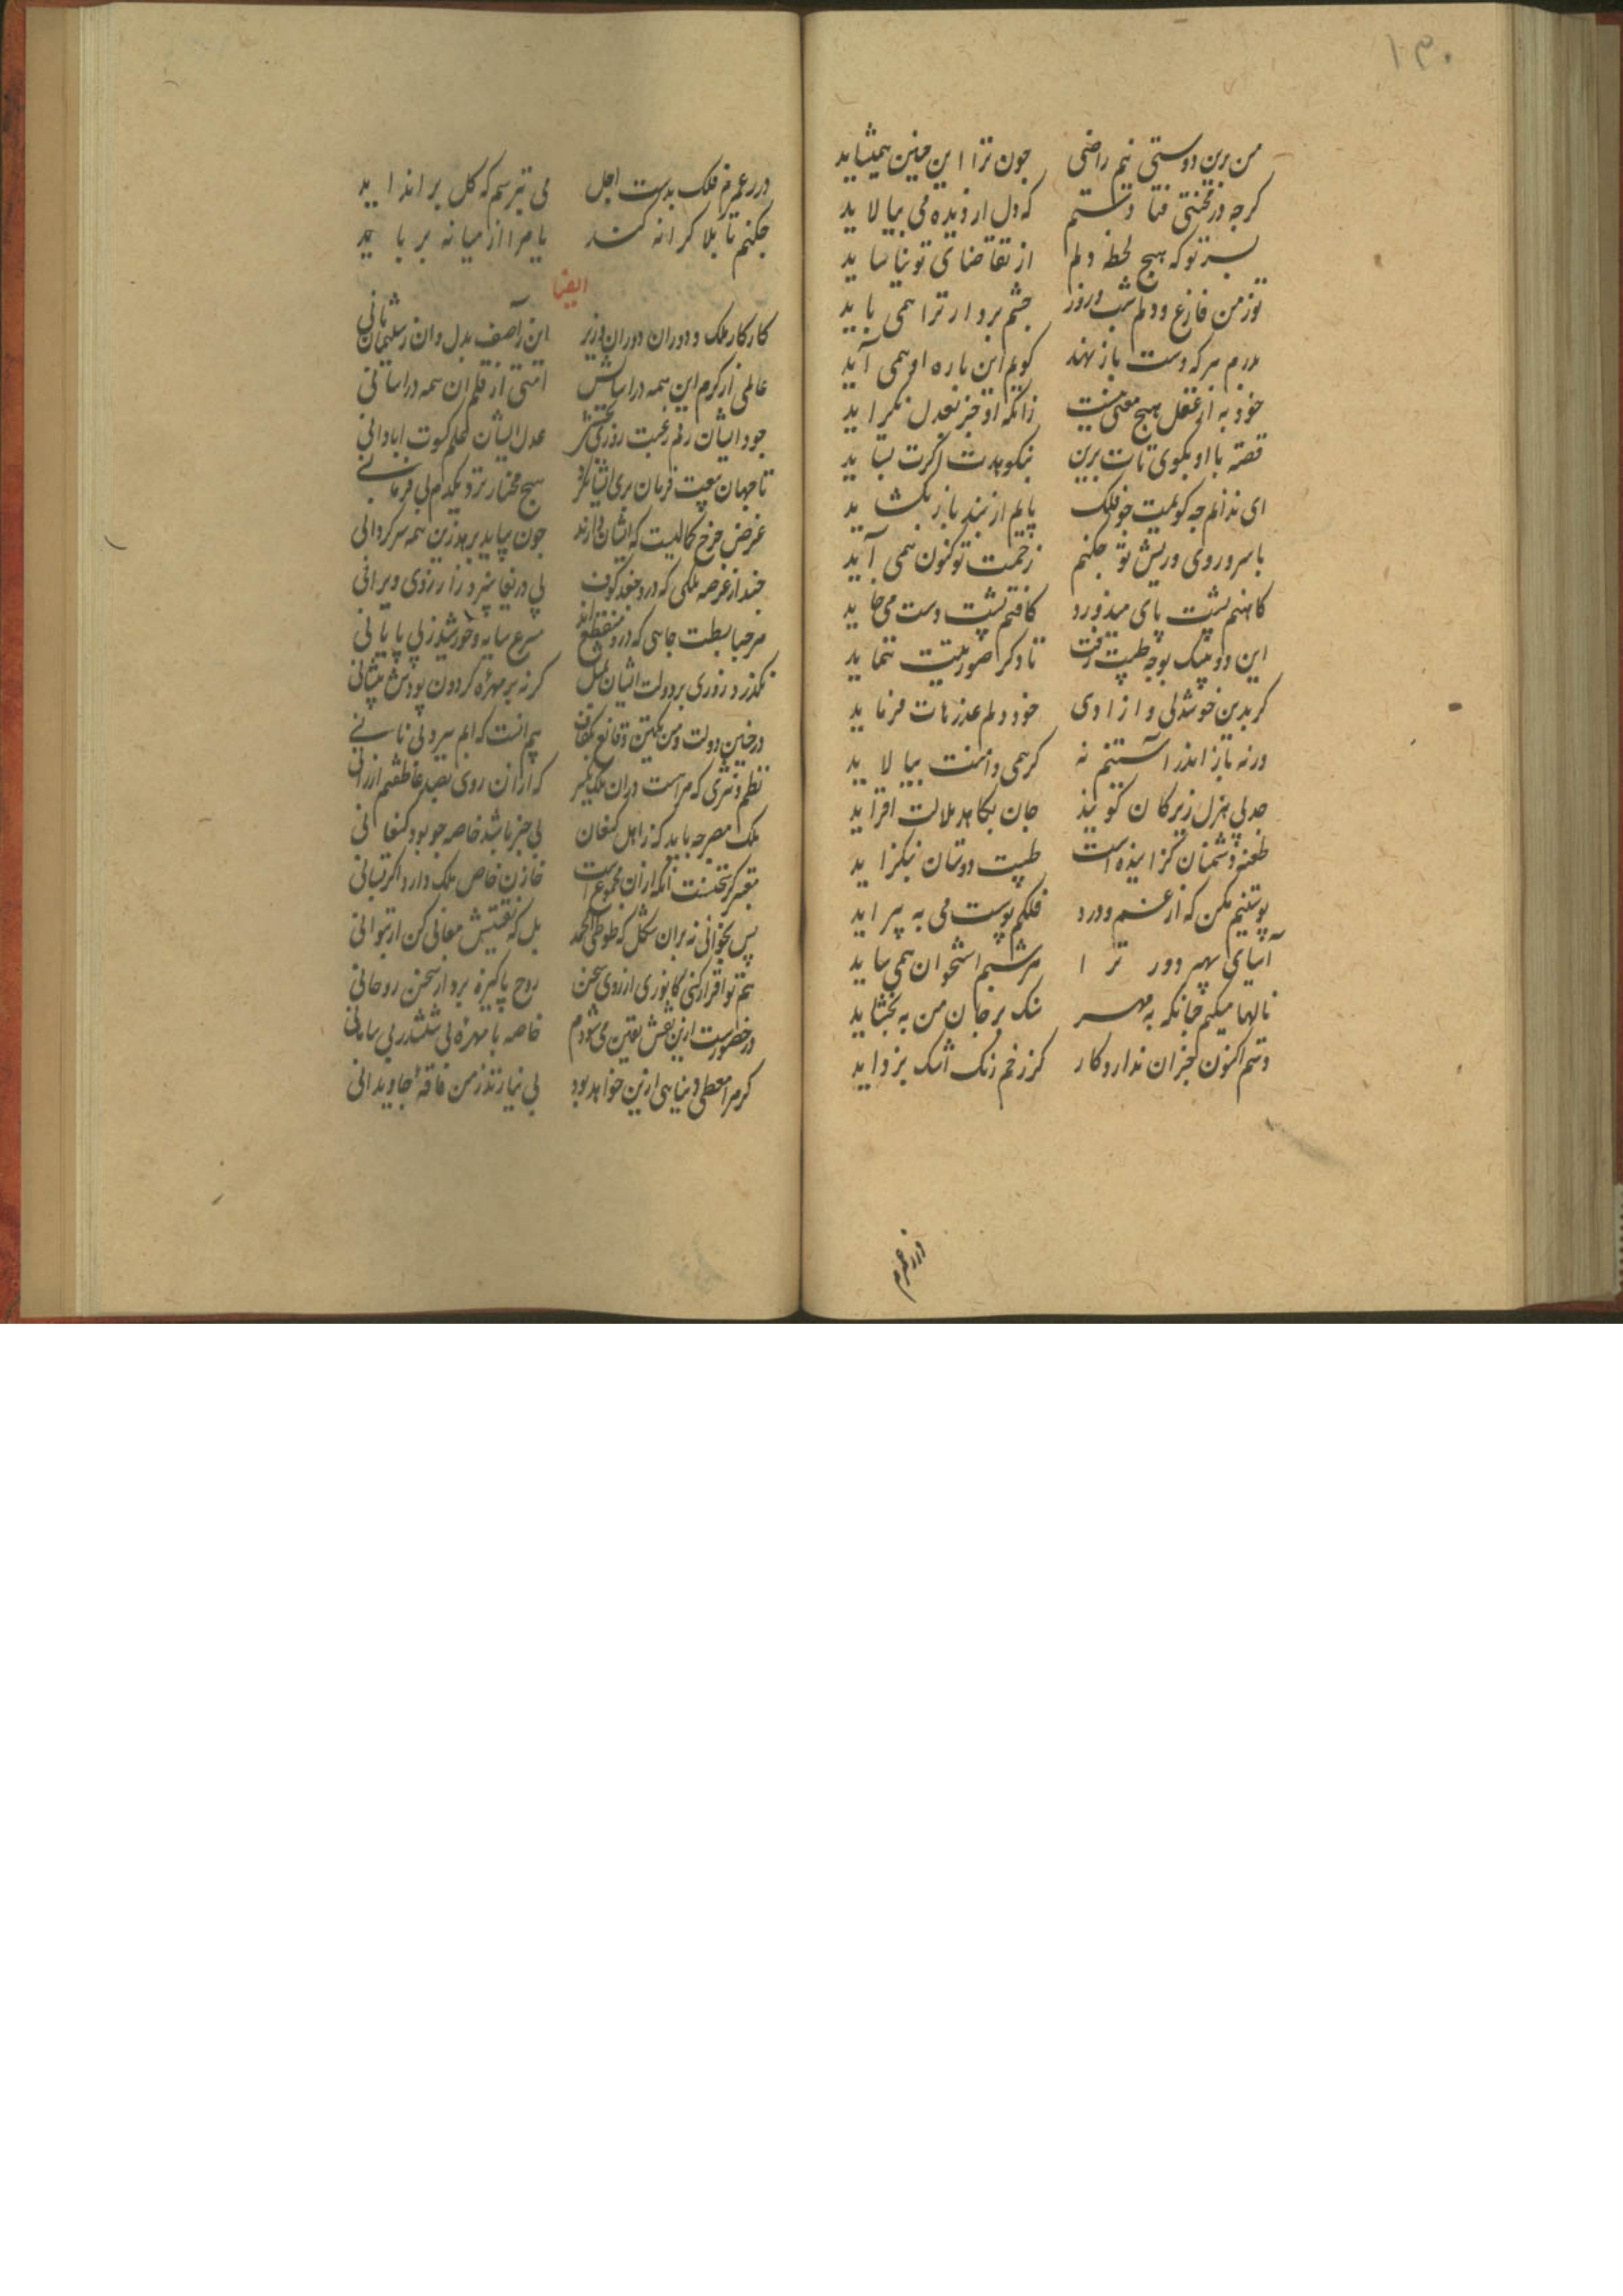 ۱۳۰
من برین دوستی نیم راضی جون ترا این جنین همیشاید
کرجه در محنتی فتادستم که دل از دیده می بیالاید
بسر تو که هیج لحظه دلم از تقاضای تو نیاساید
تو ز من فارغ و دلم شب و روز جشم بر در ترا همی باید
بر درم هر که دست باز نهد کویم این باره او همی آید
خود به از عقل هیج مفتی نیست زانکه او جز بعدل نکراید
قصه با او بکوی تات برین نیکوبدت اکرت بساید
ای ندانم جه کویمت جو فلک پایم از بند باز بکشاید
با سر و روی و ریش تو جکنم زحمت تو کنون همی آید
کانهم پشت پای میدوزد کافتم پشت دست می خاید
این دو بیتک بوجه طیبت رفت تا دکر صورتیت ننماید
کر بدین خوشدلی و ازادی خود دلم عذرهات فرماید
ورنه باز اندر آستینم نه کر همی دامنت بیالاید
جد بی هزل زیرکان کویند جان بکاهد ملالت افزاید
طعنه دشمنان کزاینده است طیبت دوستان نکزاید
پوستینم مکن که از غم و درد فلکم پوست می به پیراید
آسیای سپهر دور ترا هر شبم استخوان همی ساید
نالها میکنم جنانکه به مهر سنک بر جان من به بخشاید
دستم اکنون جز آن ندارد کار کز رخم زنک اشک بزداید
در رغمرم
در رغمرم فلک بدست اجل می بترسم که کل بر انداید
جکنم تا بلا کرانه کند یا مرا از میانه برباید
ایضا
کار کار ملک و دوران دوران وزیر این ز آصف بدل وان ز سلیمان ثانی
عالمی از کرم این همه در اسایش امتی از قلم ان همه در اسانی
جود ایشان رقم رغبت روزی بخش عدل ایشان علم کسوت ابادانی
تا جهان بیعت فرمان بری ایشان کرد هیج مختار نزد یکدم بی فرمانی
غرض جرخ کمالیست که ایشان دارند جون بیاید برهد زین همه سرکردانی
حبذا عرصه ملکی که درو جغد کوف بی در نغاپرد از آرزوی ویرانی
مرحبا بسطت جاهی که درو منقطع اند سرع سایه و خورشید ز بی پایانی
نکذرد روزی بر دولت ایشان بمثل کرنه بر مهره کردون بودش پیشانی
در جنین دولت و من یکتن و قانع بکفاف بیم انست که ابم ببرد بی نانی
نظم و نثری که مراست در ان ملک مکر که از ان روی بصد عاطفتم ارزانی
ملک مصر جه باید که ز اهل کنعان بی خبر باشد خاصه جو بود کنعانی
معتبر کر سخنست انکه از ان مجموع است خازن خاص ملک دارد اکر بستانی
پس بخوانی نه بران شکل که طوطی الحمد بل که تفتیش معانی کن ار بتوانی
هم تو اقرار کنی کانوری از روی سخن روح پاکیزه برد از سخن روحانی
در خضورست ازین نقش یقین می شودم خاصه با مهره بی ششدر بی سامانی
کر مرا معطی دنیا هی ازین خواهد بود بی نیاز تر ز من فاقه جاویدانی